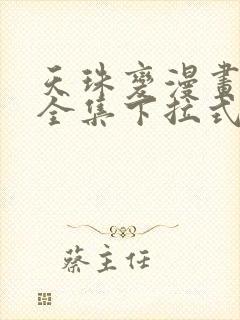 天珠變漫畫
全集下拉式
蔡主任